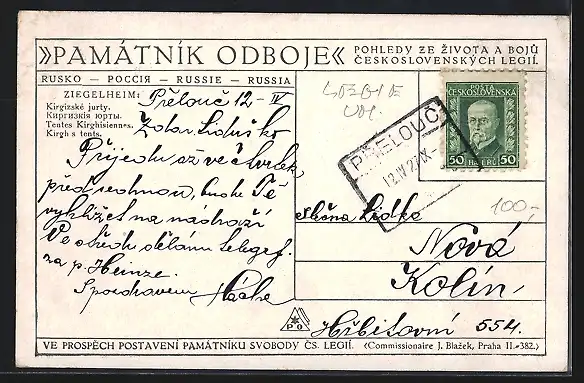 »PAMÁTNÍK ODBOJE«
POHLEDY ZE ŽIVOTA A BOJŮ
ČESKOSLOVENSKÝCH LEGIÍ.
RUSKO – РОССІЯ – RUSSIE – RUSSIA
ZIEGELHEIM:
Kirgizské jurty.
Киргизкія юрты.
Tentes Kirghisiennes.
Kirgh s tents.
Přelouč 12-IV
Zdar Liduško
Přijedu až ve čtvrtek
před sedmou, bude Tě
vyhlížet na nádraží
Ve středu dělám telegraf.
za p. Heinze.
S pozdravem
POŠTA
ČESKOSLOVENSKÁ
50 HALÉŘŮ 50
PŘELOUČ
12 IV 27 IX
100,-
Lidka
Nová
Kolín,
Hřbitovní 554.
PO
VE PROSPĚCH POSTAVENÍ PAMÁTNÍKU SVOBODY ČS. LEGIÍ. (Commissionaire J. Blažek, Praha II.-382.)